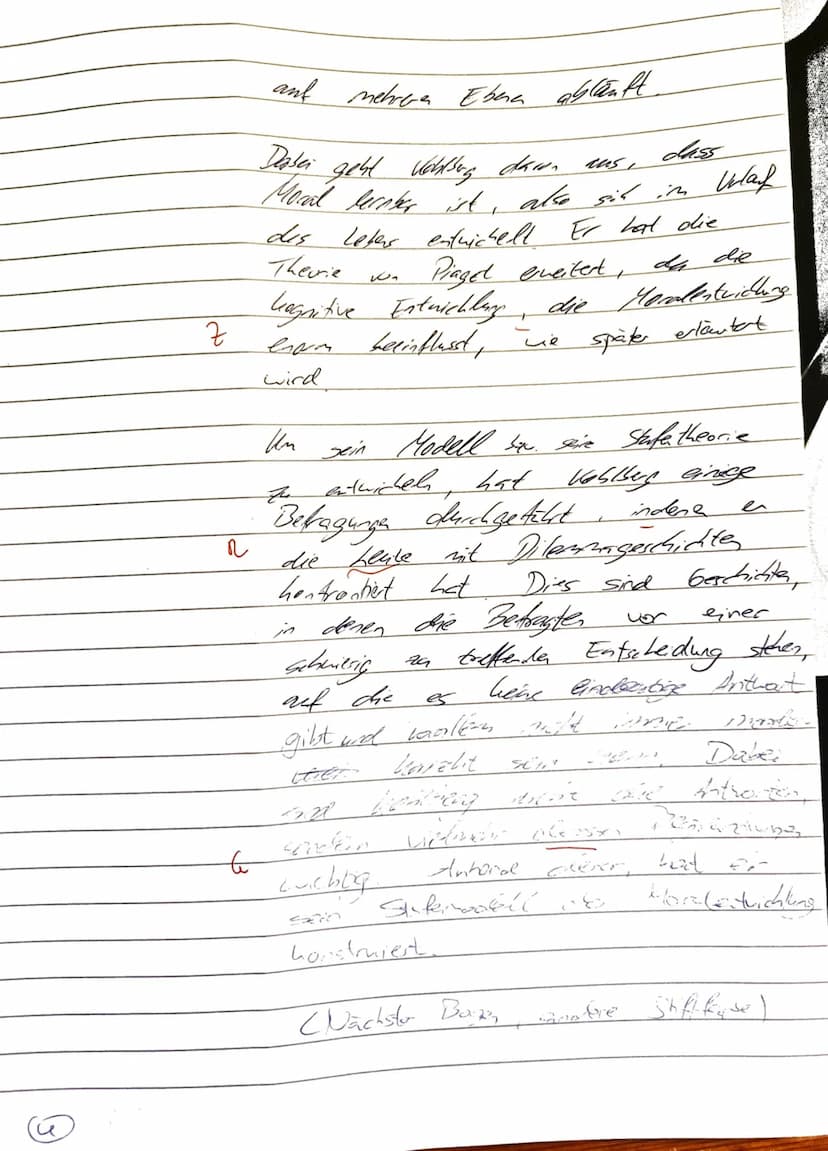 auf mehreren Ebenen abläuft.
Dabei geht Kohlberg davon aus, dass
Moral lernbar ist, also sich im Verlauf
des Lebens entwickelt. Er hat die
Theorie von Piaget erweitert, da die
kognitive Entwicklung, die Moralentwicklung
Z enorm beeinflusst, wie später erläutert
wird.
Um sein Modell bzw. seine Stufentheorie
zu entwickeln, hat Kohlberg einige
Befragungen durchgeführt, indem er
R die Leute mit Dilemmageschichten
konfrontiert hat. Dies sind Geschichten,
in denen die Befragten vor einer
schwierig zu treffenden Entscheidung stehen,
auf die es keine eindeutige Antwort
gibt und nicht immer
sein kann. Dabei
sind Kohlberg die Antworten,
G sondern vielmehr deren
wichtig. Anhand derer, hat er
sein Stufenmodell der Moralentwicklung
konstruiert.
(Nächster Bogen, andere Stiftfarbe)
4